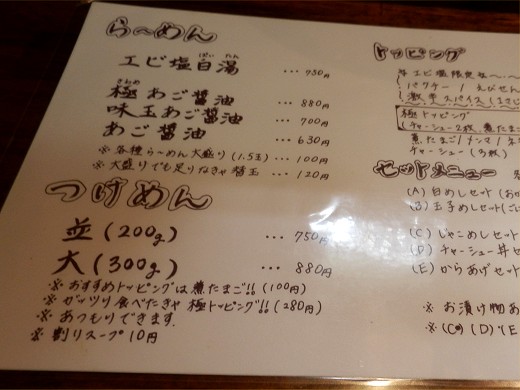 らーめん
エビ塩白湯 ぱいたん … 750円
極 きわめ あご醤油 … 880円
味玉あご醤油 … 700円
あご醤油 … 630円
※各種らーめん大盛り(1.5玉) … 100円
※大盛りでも足りなきゃ替玉 … 120円
つけめん
並(200g) … 750円
大(300g) … 880円
※おすすめトッピングは煮たまご!!(100円)
※ガッツリ食べたきゃ極トッピング!!(280円)
※あつもりできます.
※割りスープ10円
トッピング
※エビ塩限定
パクチー / えびせん
激辛スパイス
極トッピング
(チャーシュー2枚 煮たま
煮たまご / メンマ / ネ
チャーシュー(3枚)
セットメニュー
(A) 白めしセット(お
(B) 玉子めしセット(ご
(C) じゃこめしセット
(D) チャーシュー丼セ
(E) からあげセット
※ お漬け物あ
※(C)(D)(E